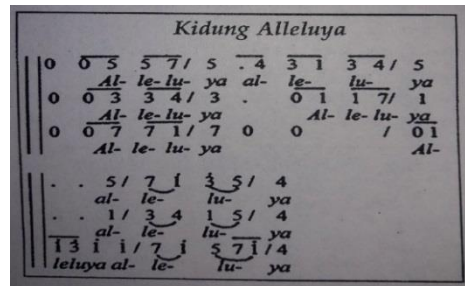 Kidung Alleluya
0 0 5 5 7/ 5 . 4 3 1 3 4/ 5
Al- le- lu- ya al- le- lu- ya
0 0 3 3 4/ 3 . 0 1 1 7/ 1
Al- le- lu- ya Al- le- lu- ya
0 0 7 7 1/ 7 0 0 / 0 1
Al- le- lu- ya Al-
. . 5/ 7 i 3 5/ 4
al- le- lu- ya
. . 1/ 3 4 1 5/ 4
al- le- lu- ya
i 3 i i/ 7 i 5 7 i/4
leluya al- le- lu- ya